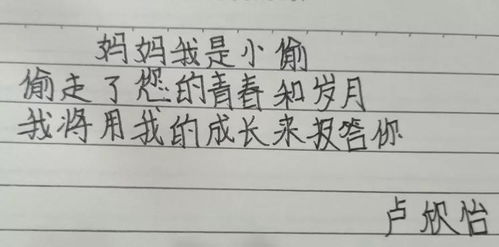 妈妈我是小偷
偷走了您的青春和岁月
我将用我的成长来报答你
卢欣怡